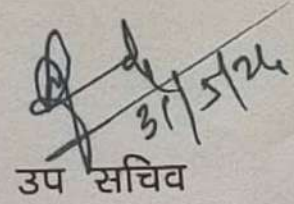 31/5/24
उप सचिव